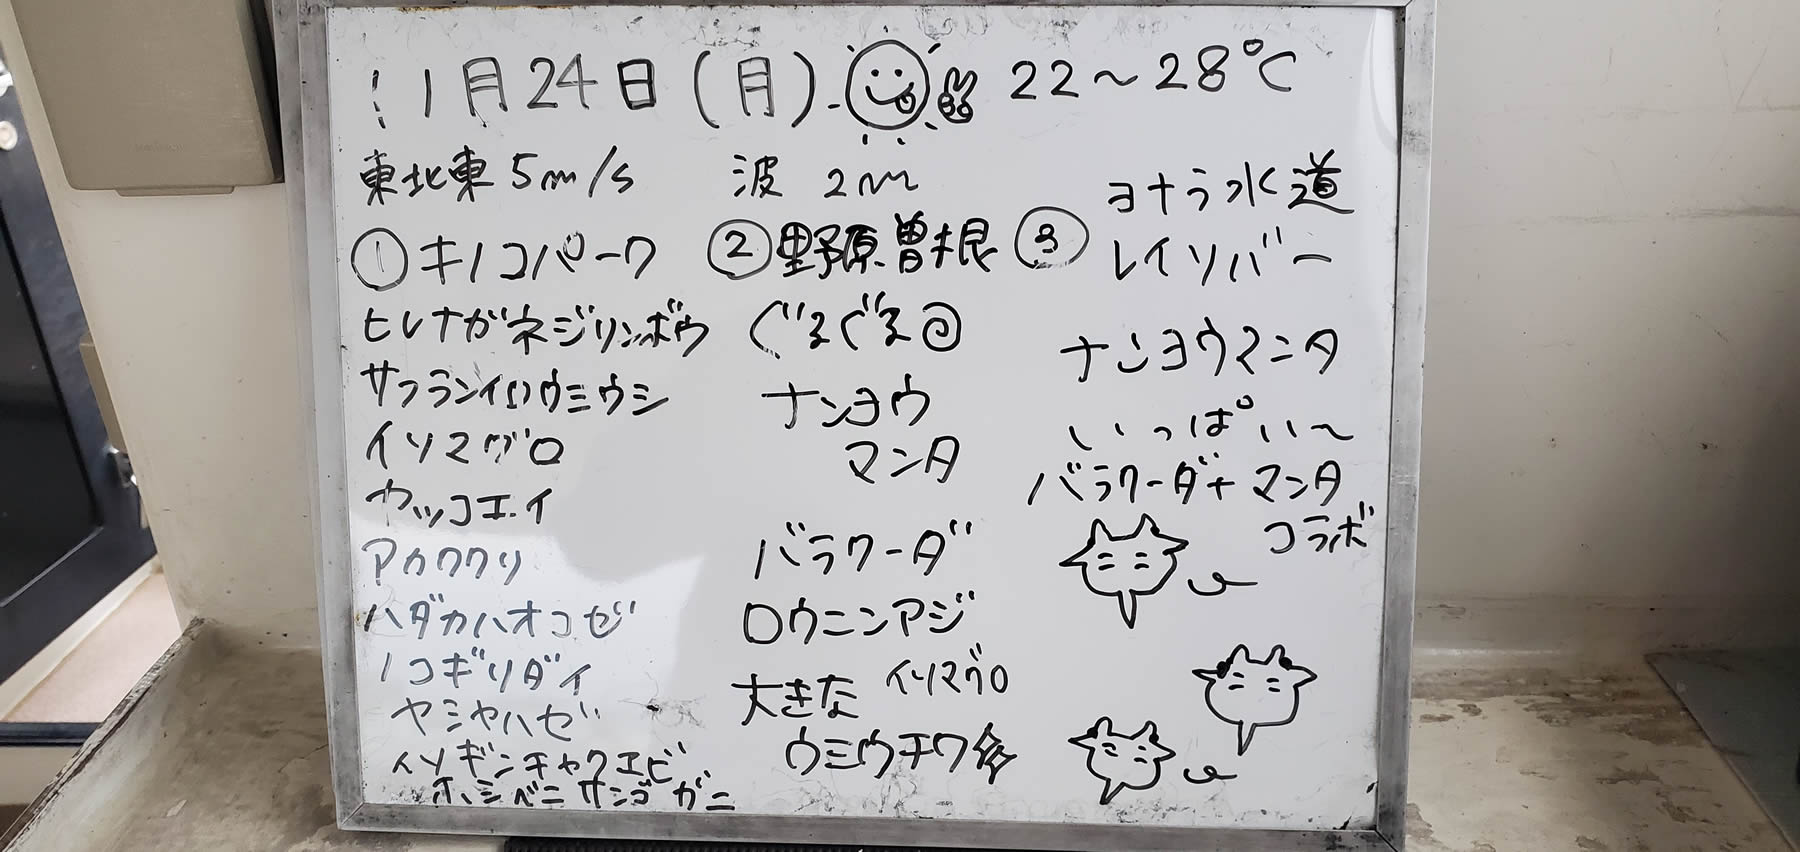 11月24日(月) 22～28℃
東北東 5m/s 波 2m
①キノコパーク
ヒレナガネジリンボウ
サフランイロウミウシ
イソマグロ
ヤッコエイ
アカククリ
ハダカハオコゼ
ノコギリダイ
ヤミヤハゼ
イソギンチャクエビ
ホシベニサンゴガニ
②野原曽根
ぐるぐる
ナンヨウ
マンタ
バラクーダ
ロウニンアジ
大きな イソマグロ
ウミウチワ
③ヨナラ水道
レインバー
ナンヨウマンタ
いっぱい～
バラクーダ+マンタ
コラボ